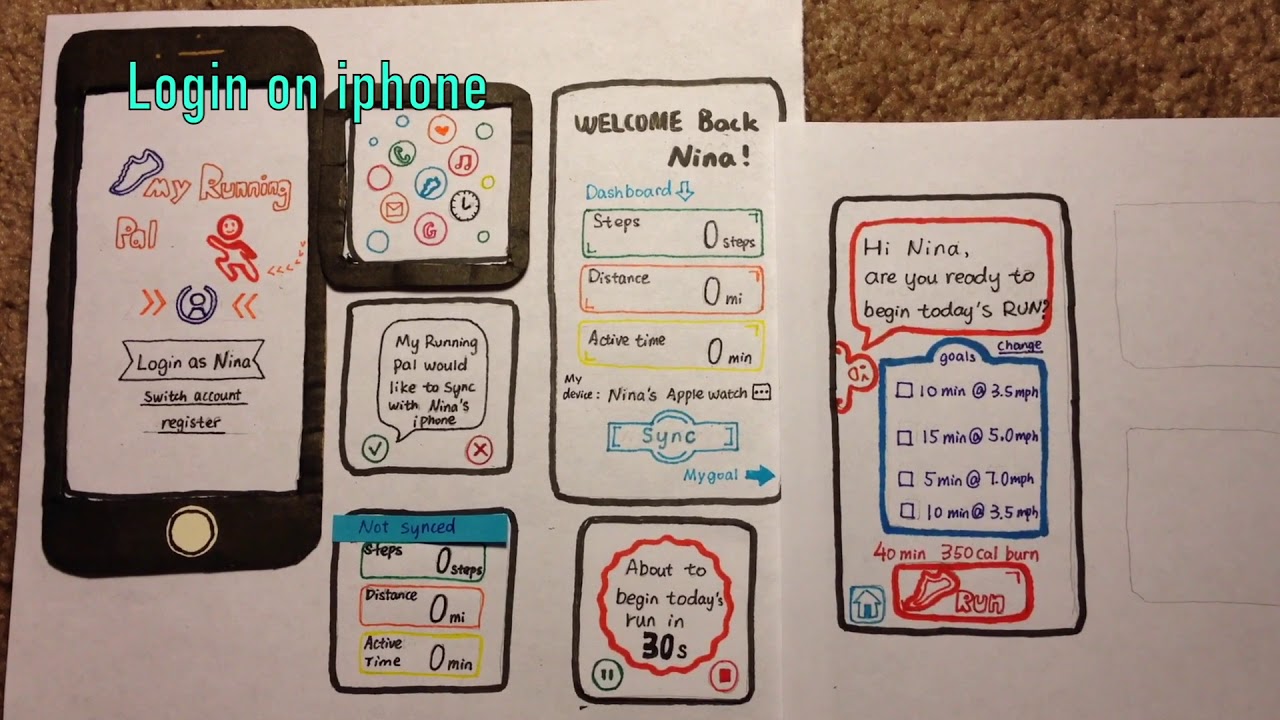 Login on iphone
My Running
Pal
Login as Nina
Switch account
register
G
My Running
Pal would
like to Sync
with Nina's
iphone
Not synced
Steps
0 steps
Distance
0 mi
Active
Time
0 min
WELCOME Back
Nina!
Dashboard
Steps
0 steps
Distance
0 mi
Active time
0 min
My
device: Nina's Apple Watch
Sync
My goal
About to
begin today's
run in
30s
Hi Nina,
are you ready to
begin today's RUN?
goals
change
10 min @ 3.5 mph
15 min @ 5.0 mph
5 min @ 7.0 mph
10 min @ 3.5 mph
40 min 350 Cal burn
RUN